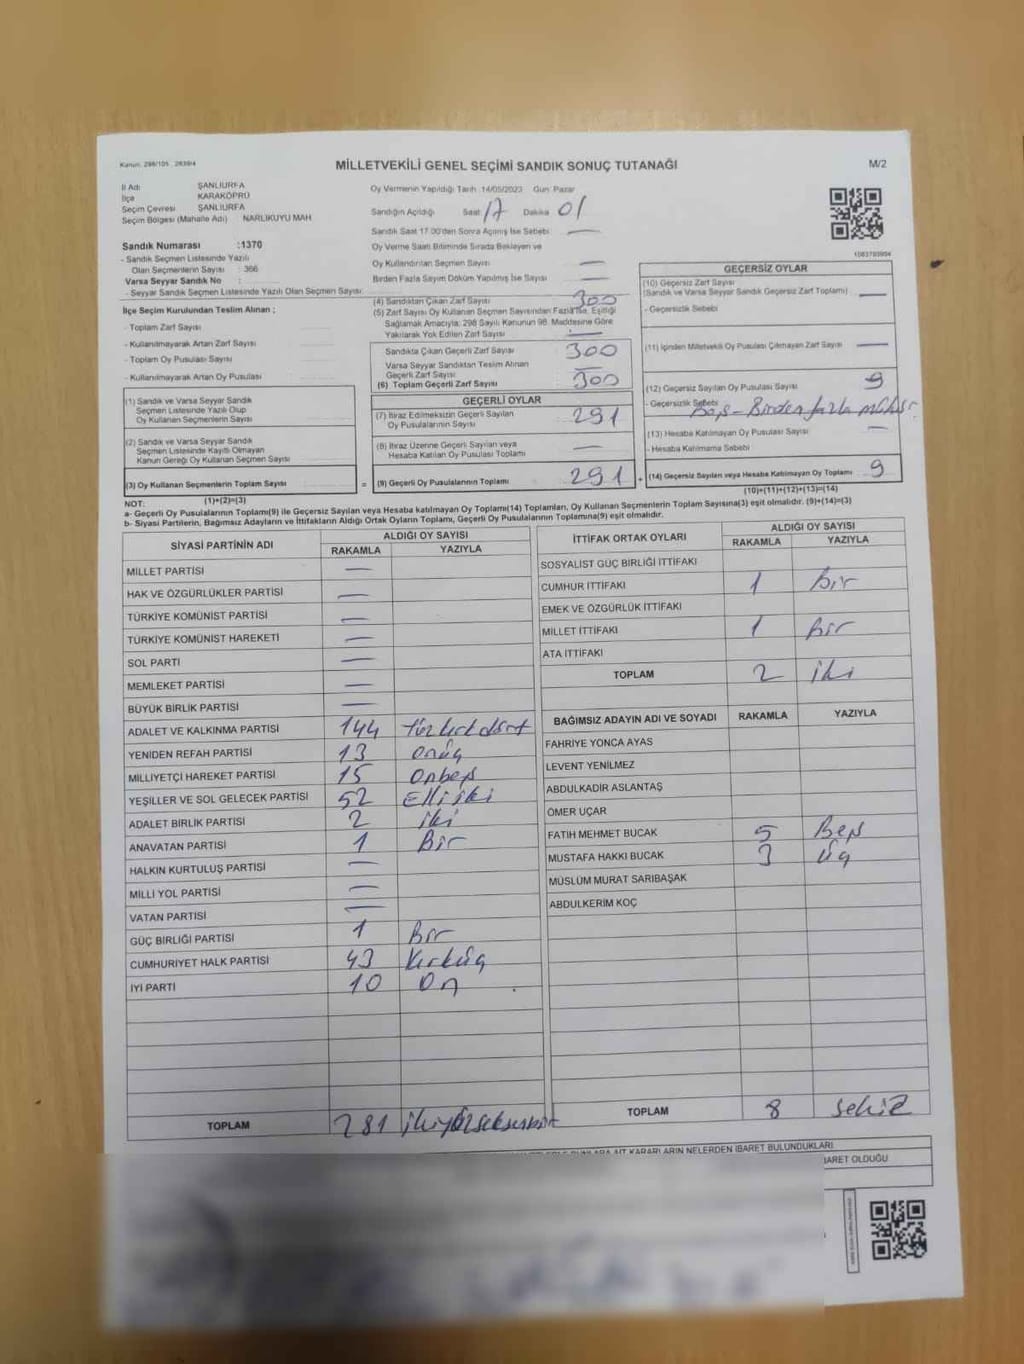 Kanun: 298/105 , 2839/4
MİLLETVEKİLİ GENEL SEÇİMİ SANDIK SONUÇ TUTANAĞI
M/2
İl Adı ŞANLIURFA
İlçe KARAKÖPRÜ
Seçim Çevresi ŞANLIURFA
Seçim Bölgesi (Mahalle Adı) NARLIKUYU MAH
Oy Vermenin Yapıldığı Tarih 14/05/2023 Gün: Pazar
Sandığın Açıldığı Saat 17 Dakika 01
Sandık Saat 17:00'den Sonra Açılmış İse Sebebi —
Oy Verme Saati Bitiminde Sırada Bekleyen ve
Oy Kullandırılan Seçmen Sayısı —
Birden Fazla Sayım Döküm Yapılmış İse Sayısı —
Sandık Numarası :1370
- Sandık Seçmen Listesinde Yazılı
Olan Seçmenlerin Sayısı : 366
Varsa Seyyar Sandık No :
- Seyyar Sandık Seçmen Listesinde Yazılı Olan Seçmen Sayısı:
İlçe Seçim Kurulundan Teslim Alınan ;
- Toplam Zarf Sayısı :
- Kullanılmayarak Artan Zarf Sayısı :
- Toplam Oy Pusulası Sayısı :
- Kullanılmayarak Artan Oy Pusulası :
(1) Sandık ve Varsa Seyyar Sandık
Seçmen Listesinde Yazılı Olup
Oy Kullanan Seçmenlerin Sayısı
(2) Sandık ve Varsa Seyyar Sandık
Seçmen Listesinde Kayıtlı Olmayan
Kanun Gereği Oy Kullanan Seçmen Sayısı
(3) Oy Kullanan Seçmenlerin Toplam Sayısı =
(1)+(2)=(3)
(4) Sandıktan Çıkan Zarf Sayısı 300
(5) Zarf Sayısı Oy Kullanan Seçmen Sayısından Fazla İse, Eşitliği
Sağlamak Amacıyla; 298 Sayılı Kanunun 98. Maddesine Göre
Yakılarak Yok Edilen Zarf Sayısı —
Sandıkta Çıkan Geçerli Zarf Sayısı 300
Varsa Seyyar Sandıktan Teslim Alınan
Geçerli Zarf Sayısı —
(6) Toplam Geçerli Zarf Sayısı 300
GEÇERLİ OYLAR
(7) İtiraz Edilmeksizin Geçerli Sayılan
Oy Pusulalarının Sayısı 291
(8) İtiraz Üzerine Geçerli Sayılan veya
Hesaba Katılan Oy Pusulası Toplamı —
(9) Geçerli Oy Pusulalarının Toplamı 291 +
GEÇERSİZ OYLAR
(10) Geçersiz Zarf Sayısı
(Sandık ve Varsa Seyyar Sandık Geçersiz Zarf Toplamı) —
- Geçersizlik Sebebi
(11) İçinden Milletvekili Oy Pusulası Çıkmayan Zarf Sayısı —
(12) Geçersiz Sayılan Oy Pusulası Sayısı 9
- Geçersizlik Sebebi Boş - Birden fazla mühür
(13) Hesaba Katılmayan Oy Pusulası Sayısı —
- Hesaba Katılmama Sebebi
(14) Geçersiz Sayılan veya Hesaba Katılmayan Oy Toplamı 9
(10)+(11)+(12)+(13)=(14)
NOT:
a- Geçerli Oy Pusulalarının Toplamı(9) ile Geçersiz Sayılan veya Hesaba katılmayan Oy Toplamı(14) Toplamları, Oy Kullanan Seçmenlerin Toplam Sayısına(3) eşit olmalıdır. (9)+(14)=(3)
b- Siyasi Partilerin, Bağımsız Adayların ve İttifakların Aldığı Ortak Oyların Toplamı, Geçerli Oy Pusulalarının Toplamına(9) eşit olmalıdır.
SİYASİ PARTİNİN ADI ALDIĞI OY SAYISI
RAKAMLA YAZIYLA
MİLLET PARTİSİ —
HAK VE ÖZGÜRLÜKLER PARTİSİ —
TÜRKİYE KOMÜNİST PARTİSİ —
TÜRKİYE KOMÜNİST HAREKETİ —
SOL PARTİ —
MEMLEKET PARTİSİ —
BÜYÜK BİRLİK PARTİSİ —
ADALET VE KALKINMA PARTİSİ 144 Yüzkırkdört
YENİDEN REFAH PARTİSİ 13 Onüç
MİLLİYETÇİ HAREKET PARTİSİ 15 Onbeş
YEŞİLLER VE SOL GELECEK PARTİSİ 52 Elli iki
ADALET BİRLİK PARTİSİ 2 iki
ANAVATAN PARTİSİ 1 Bir
HALKIN KURTULUŞ PARTİSİ —
MİLLİ YOL PARTİSİ —
VATAN PARTİSİ —
GÜÇ BİRLİĞİ PARTİSİ 1 Bir
CUMHURİYET HALK PARTİSİ 43 Kırküç
İYİ PARTİ 10 On
TOPLAM 281 ikiyüzseksenbir
İTTİFAK ORTAK OYLARI ALDIĞI OY SAYISI
RAKAMLA YAZIYLA
SOSYALİST GÜÇ BİRLİĞİ İTTİFAKI
CUMHUR İTTİFAKI 1 Bir
EMEK VE ÖZGÜRLÜK İTTİFAKI
MİLLET İTTİFAKI 1 Bir
ATA İTTİFAKI
TOPLAM 2 iki
BAĞIMSIZ ADAYIN ADI VE SOYADI RAKAMLA YAZIYLA
FAHRİYE YONCA AYAS
LEVENT YENİLMEZ
ABDULKADİR ASLANTAŞ
ÖMER UÇAR
FATİH MEHMET BUCAK 5 Beş
MUSTAFA HAKKI BUCAK 3 üç
MÜSLÜM MURAT SARIBAŞAK
ABDULKERİM KOÇ
TOPLAM 8 sekiz
KARARLARIN NELERDEN İBARET BULUNDUKLARI
İBARET OLDUĞU